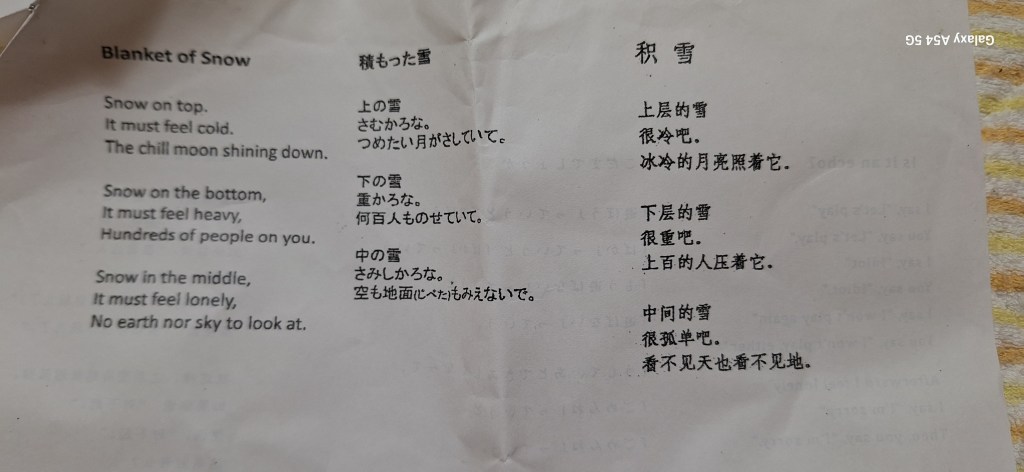 Blanket of Snow
Snow on top.
It must feel cold.
The chill moon shining down.
Snow on the bottom,
It must feel heavy,
Hundreds of people on you.
Snow in the middle,
It must feel lonely,
No earth nor sky to look at.
積もった雪
上の雪
さむかろな。
つめたい月がさしていて。
下の雪
重かろな。
何百人ものせていて。
中の雪
さみしかろな。
空も地面(じべた)もみえないで。
积雪
上层的雪
很冷吧。
冰冷的月亮照着它。
下层的雪
很重吧。
上百的人压着它。
中间的雪
很孤单吧。
看不见天也看不见地。
Galaxy A54 5G